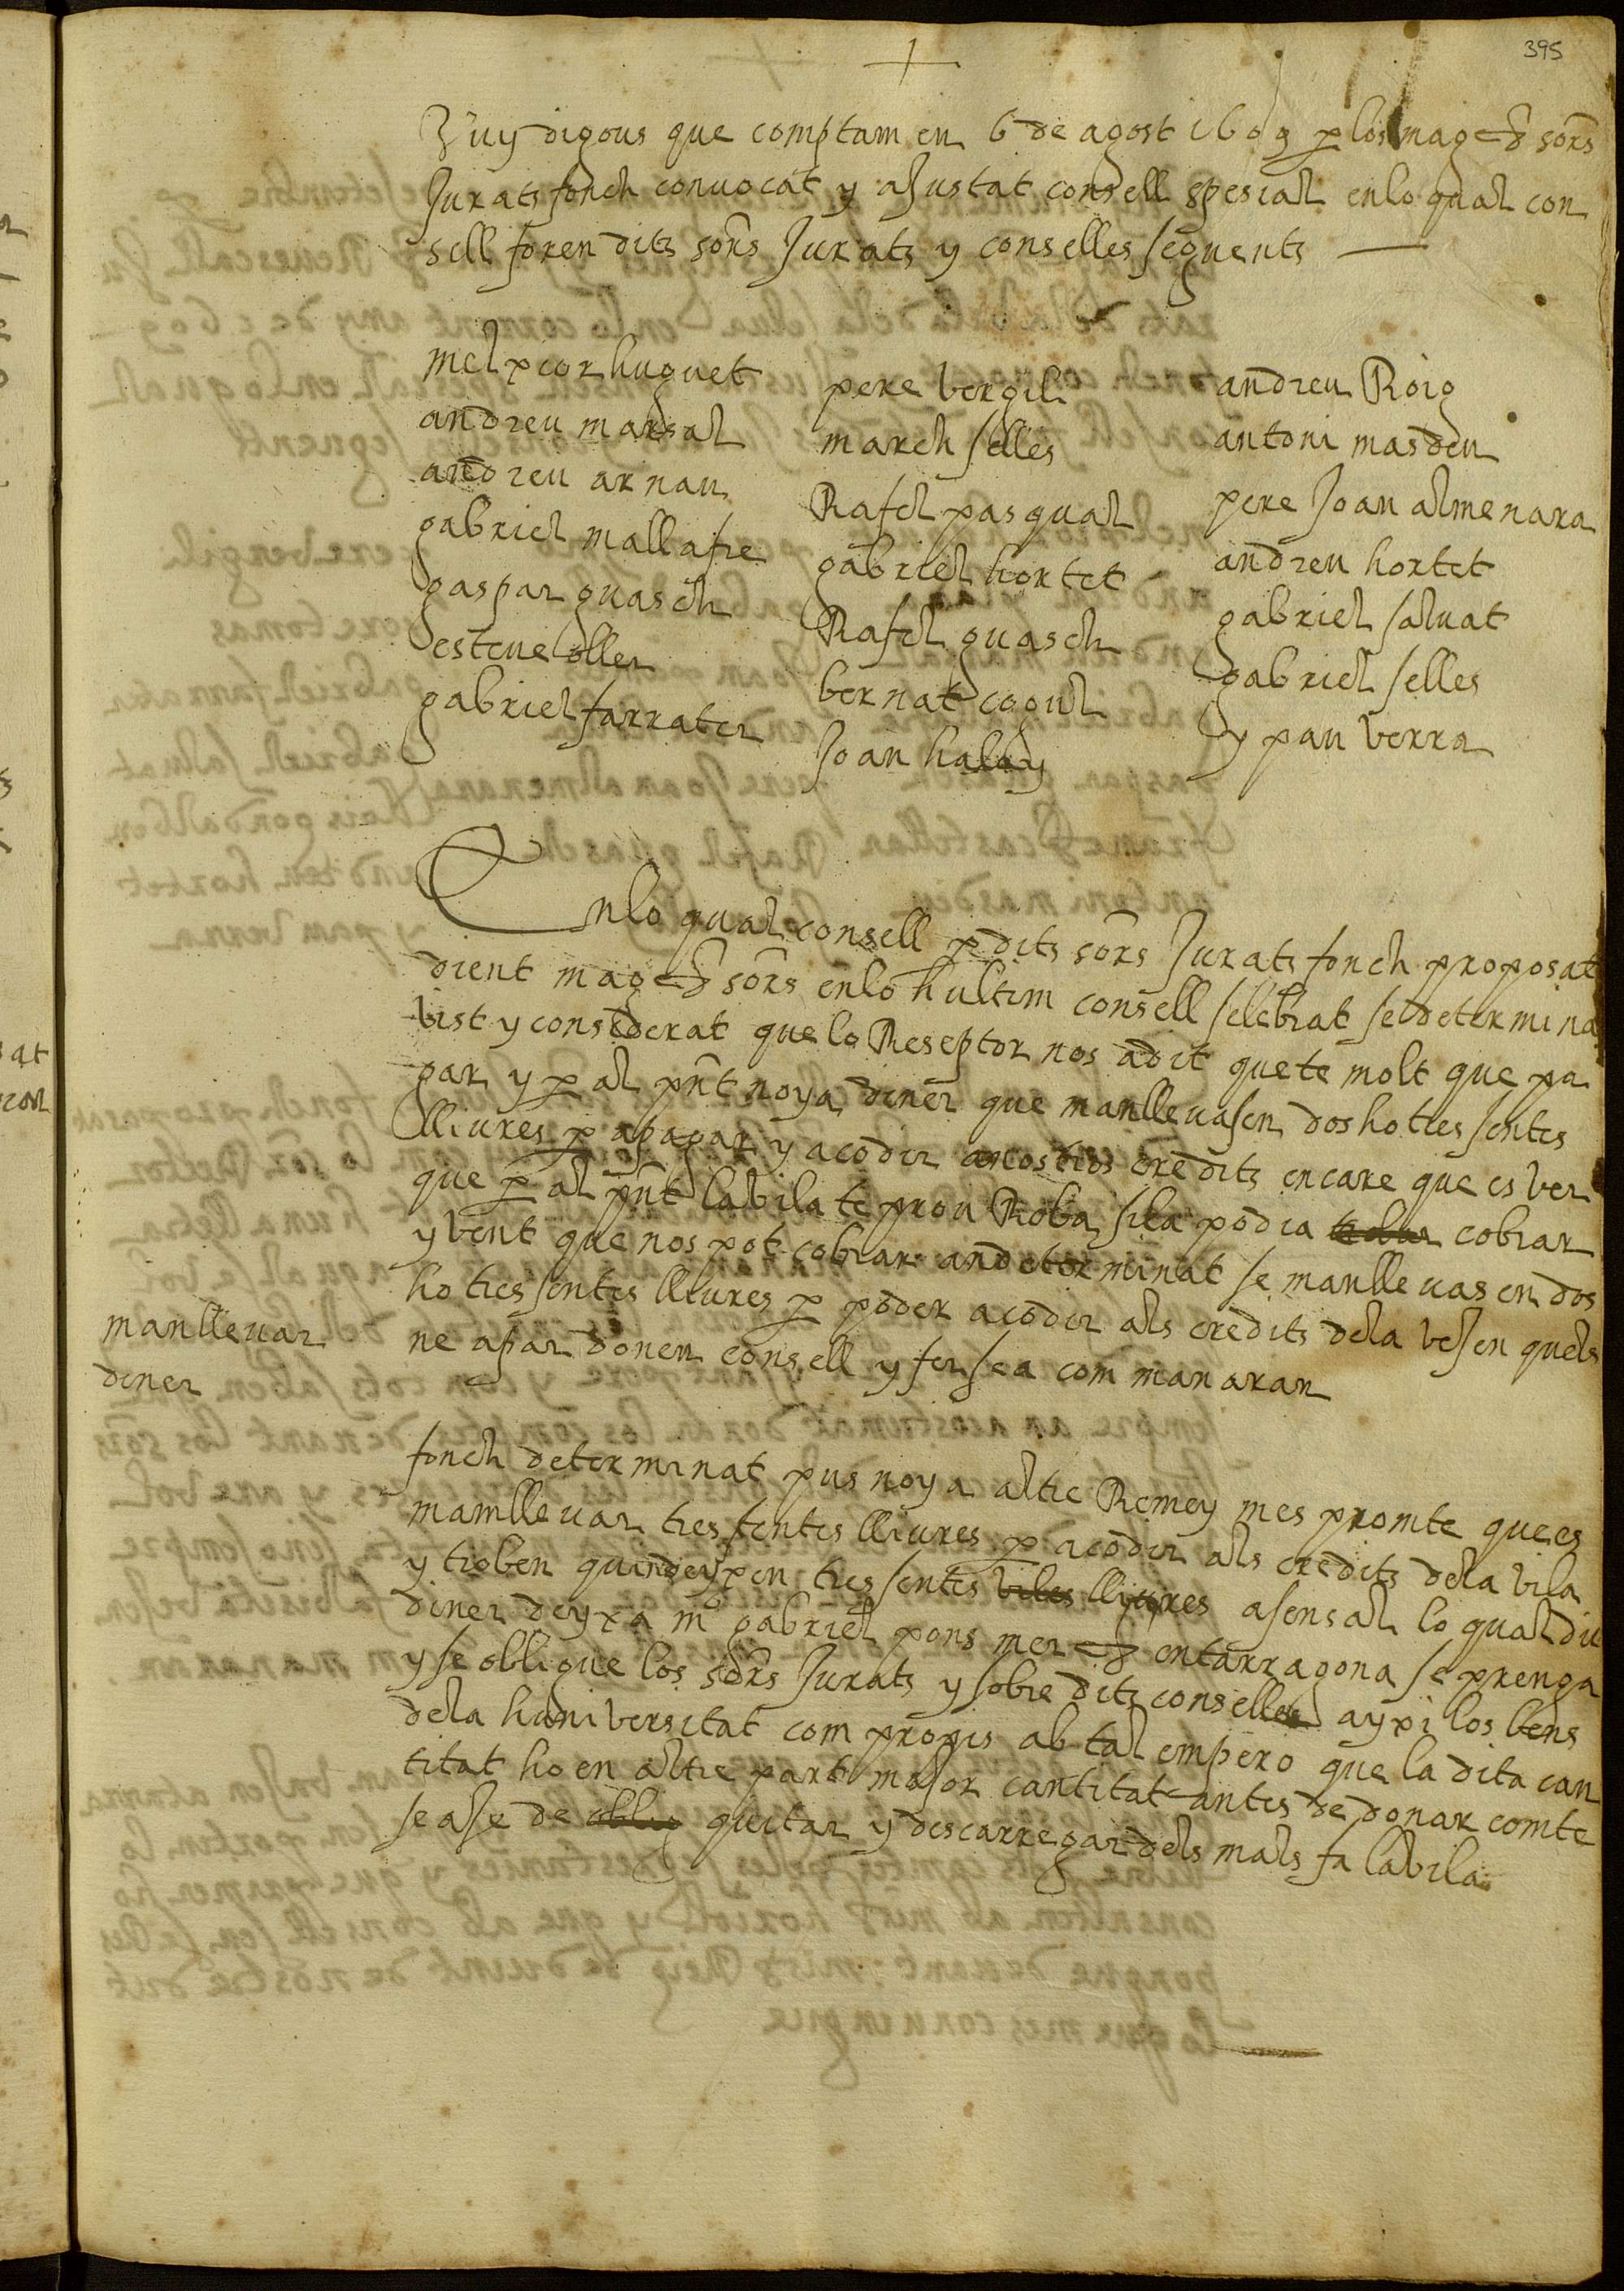 395
Vuy digous que comptam en 6 de agost 1609 p los mag.chs sors
Jurats fonch convocat y ajustat consell spesial enlo qual con
sell foren dits sors Jurats y conselles seguents
melxior huguet
andreu marsal
andreu arnau
gabriel mallafre
gaspar guasch
esteve oller
gabriel farrater
pere bergili
march selles
Rafel pasqual
gabriel hortet
Rafel guasch
bernat cogul
Joan
andreu Roig
antoni masdeu
pere Joan almenara
andreu hortet
gabriel salvat
gabriel selles
y pau verra
Enlo qual consell p dits sors Jurats fonch proposat
dient mag.chs sors enlo hultim consell selebrat se determina
vist y considerat que lo Reseptor nos a dit que te molt que pa
gar y p al pnt noya diner que manllevasen dos ho tres sentes
lliures p apagar y acodir anostros credits encare que es ver
que p al pnt la vila te prou Roba sila podia cobrar
y vent que nos pot cobrar an determinat se manllevasen dos
ho tres sentes lliures p poder acodir als credits dela vesen quels
ne apar donen consell y fer sea com manaran
manllevar
diner
fonch determinat pus noya altre Remey mes promte que es
mamllevar tres sentes lliures p acodir als credits dela vila
y troben quin deyxen tres sentes lliures asensal lo qual diu
diner deyxa mº gabriel pons mer.ch entarragona se prenga
y se obligue los sors Jurats y sobre dits conselles ayxi los bens
dela huniversitat com propis ab tal empero que la dita can
titat ho en altre part major cantitat antes de donar comte
se aje de quitar y descarregar dels mals fa la vila